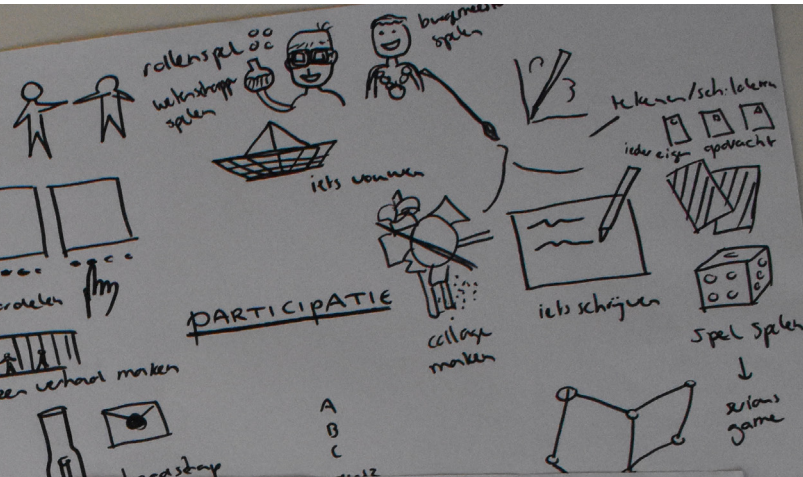 rollenspel
wetenschapper
spelen
burgmeester
spelen
tekenen/schilderen
ieder eigen opdracht
iets vouwen
PARTICIPATIE
collage
maken
iets schrijven
spel spelen
↓
serious
game
een verhaal maken
A
B
C